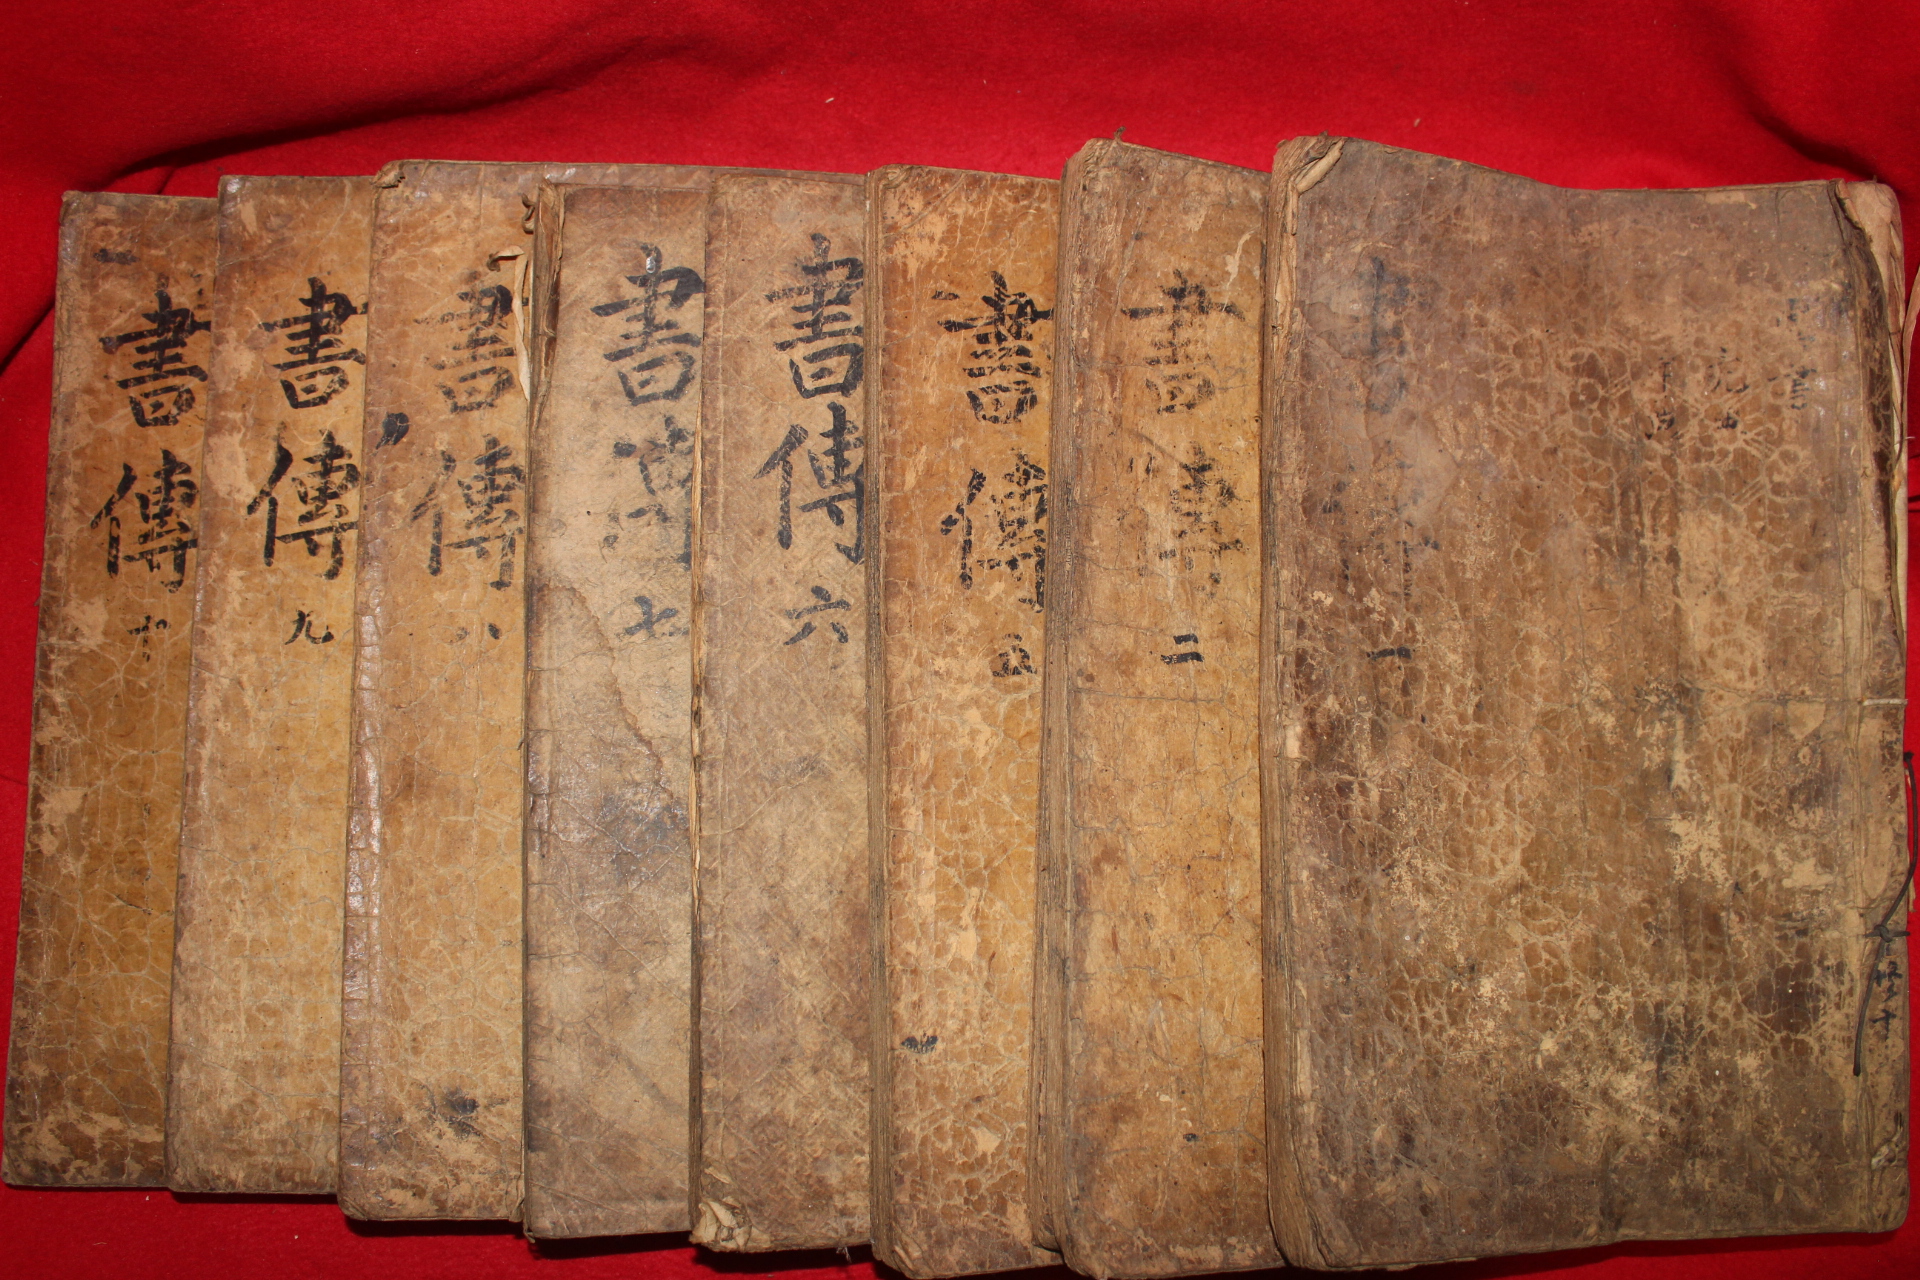 書傳 一
書傳 二
書傳 五
書傳 六
書傳 七
書傳 八
書傳 九
書傳 十